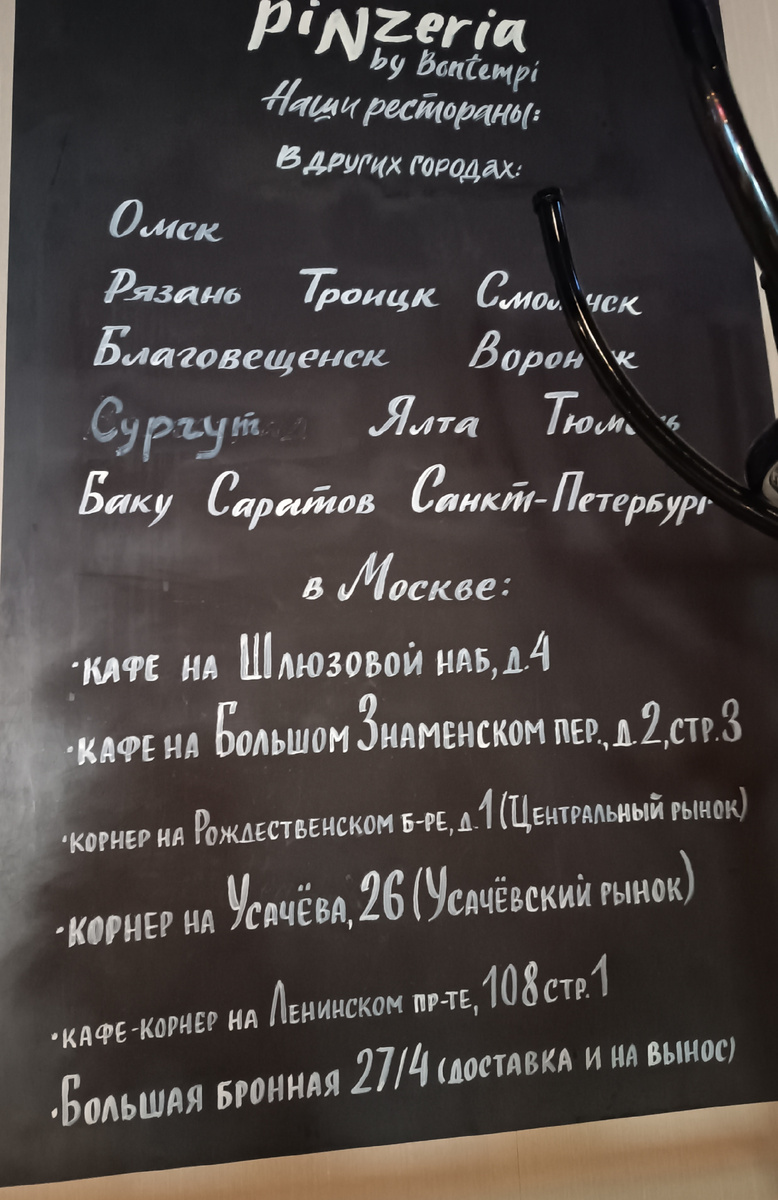 PiNzeria
by Bontempi
Наши рестораны:
В других городах:
Омск
Рязань Троицк Смоленск
Благовещенск Воронеж
Сургут Ялта Тюмень
Баку Саратов Санкт-Петербург
в Москве:
·кафе на Шлюзовой наб, д.4
·кафе на Большом Знаменском пер., д.2,стр.3
·корнер на Рождественском б-ре, д.1 (Центральный рынок)
·корнер на Усачёва, 26 (Усачёвский рынок)
·кафе-корнер на Ленинском пр-те, 108 стр.1
·Большая бронная 27/4 (доставка и на вынос)